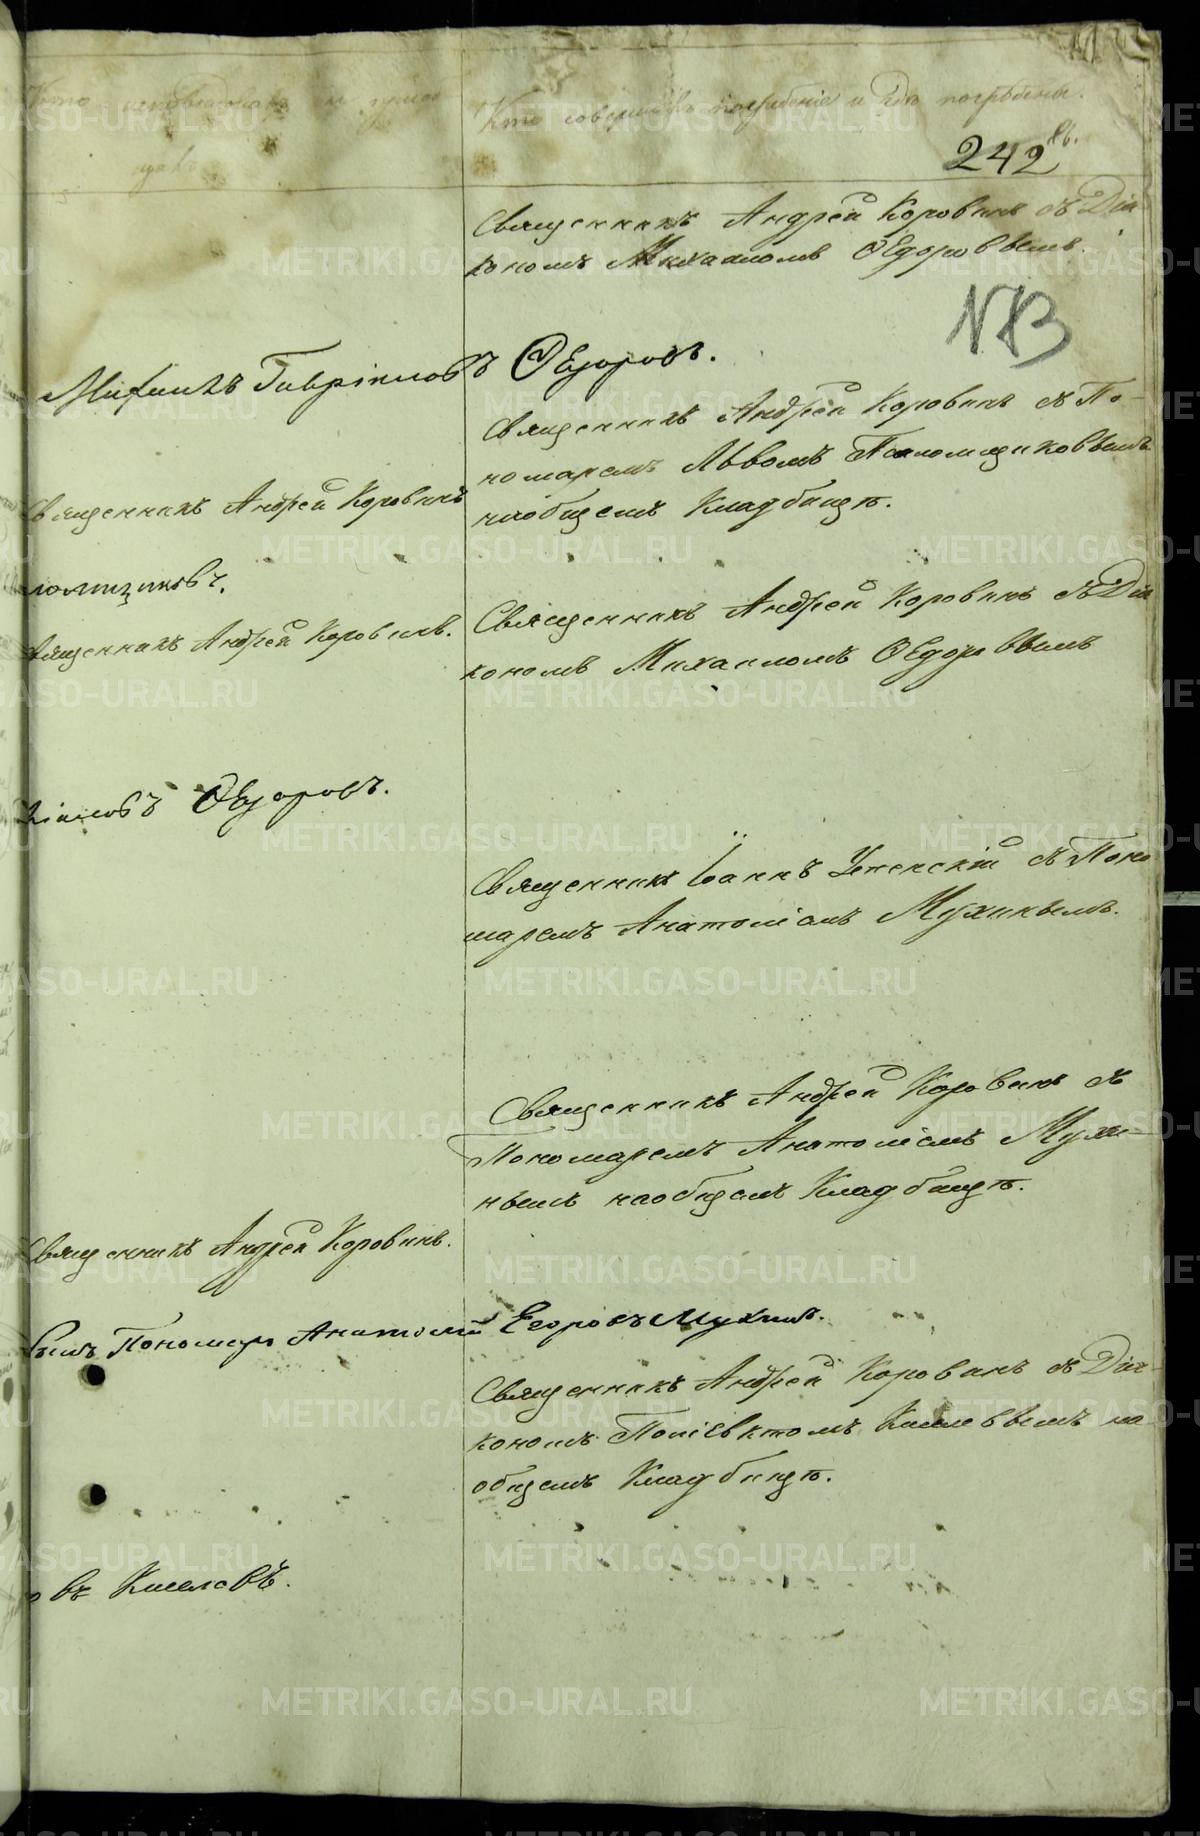 Кто исповедовалъ и пріоб
щалъ
Кто совершалъ погребеніе и гдѣ погребены.
242 об.
Священникъ Андрей Коровинъ съ Діа
кономъ Михаиломъ Ѳедоровымъ.
N 83
Михаилъ Гавріиловъ Ѳедоровъ.
Священникъ Андрей Коровинъ съ По-
номаремъ Львомъ Поломщиковымъ
наобщемъ Кладбищѣ.
Священникъ Андрей Коровинъ
ломщиковъ.
Священникъ Андрей Коровинъ съ Діа
кономъ Михаиломъ Ѳедоровымъ
вященникъ Андрей Коровинъ.
ріиловъ Ѳедоровъ.
Священникъ Іоаннъ Успенскій съ Поно
маремъ Анатоліемъ Мухинымъ.
Священникъ Андрей Коровинъ съ
Пономаремъ Анатоліемъ Мухи-
нымъ наобщемъ Кладбищѣ.
Священникъ Андрей Коровинъ.
Пономарь Анатолій Егоровъ Мухинъ.
Священникъ Андрей Коровинъ съ Діа-
кономъ Поліевктомъ Киселевымъ на
общемъ Кладбищѣ.
овъ Киселевъ.
METRIKI.GASO-URAL.RU